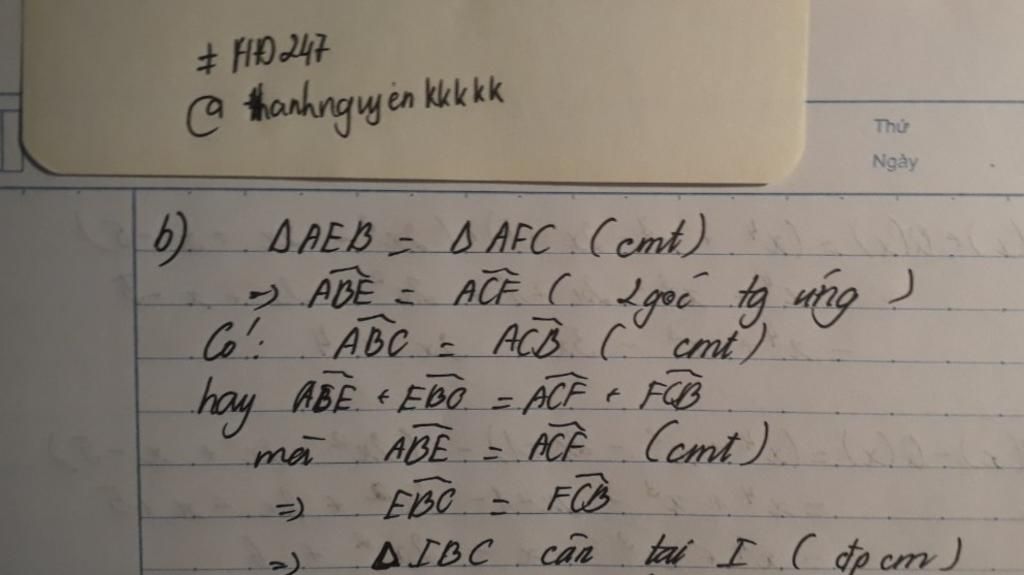 # HĐ247
@thanhnguyenkkkkk
Thứ
Ngày
b) ΔAEB = ΔAFC (cmt)
=> ABE = ACF (2 góc tg ứng)
Có: ABC = ACB (cmt)
hay ABE + EBC = ACF + FCB
mà ABE = ACF (cmt)
=> EBC = FCB
=> ΔIBC cân tại I (đpcm)